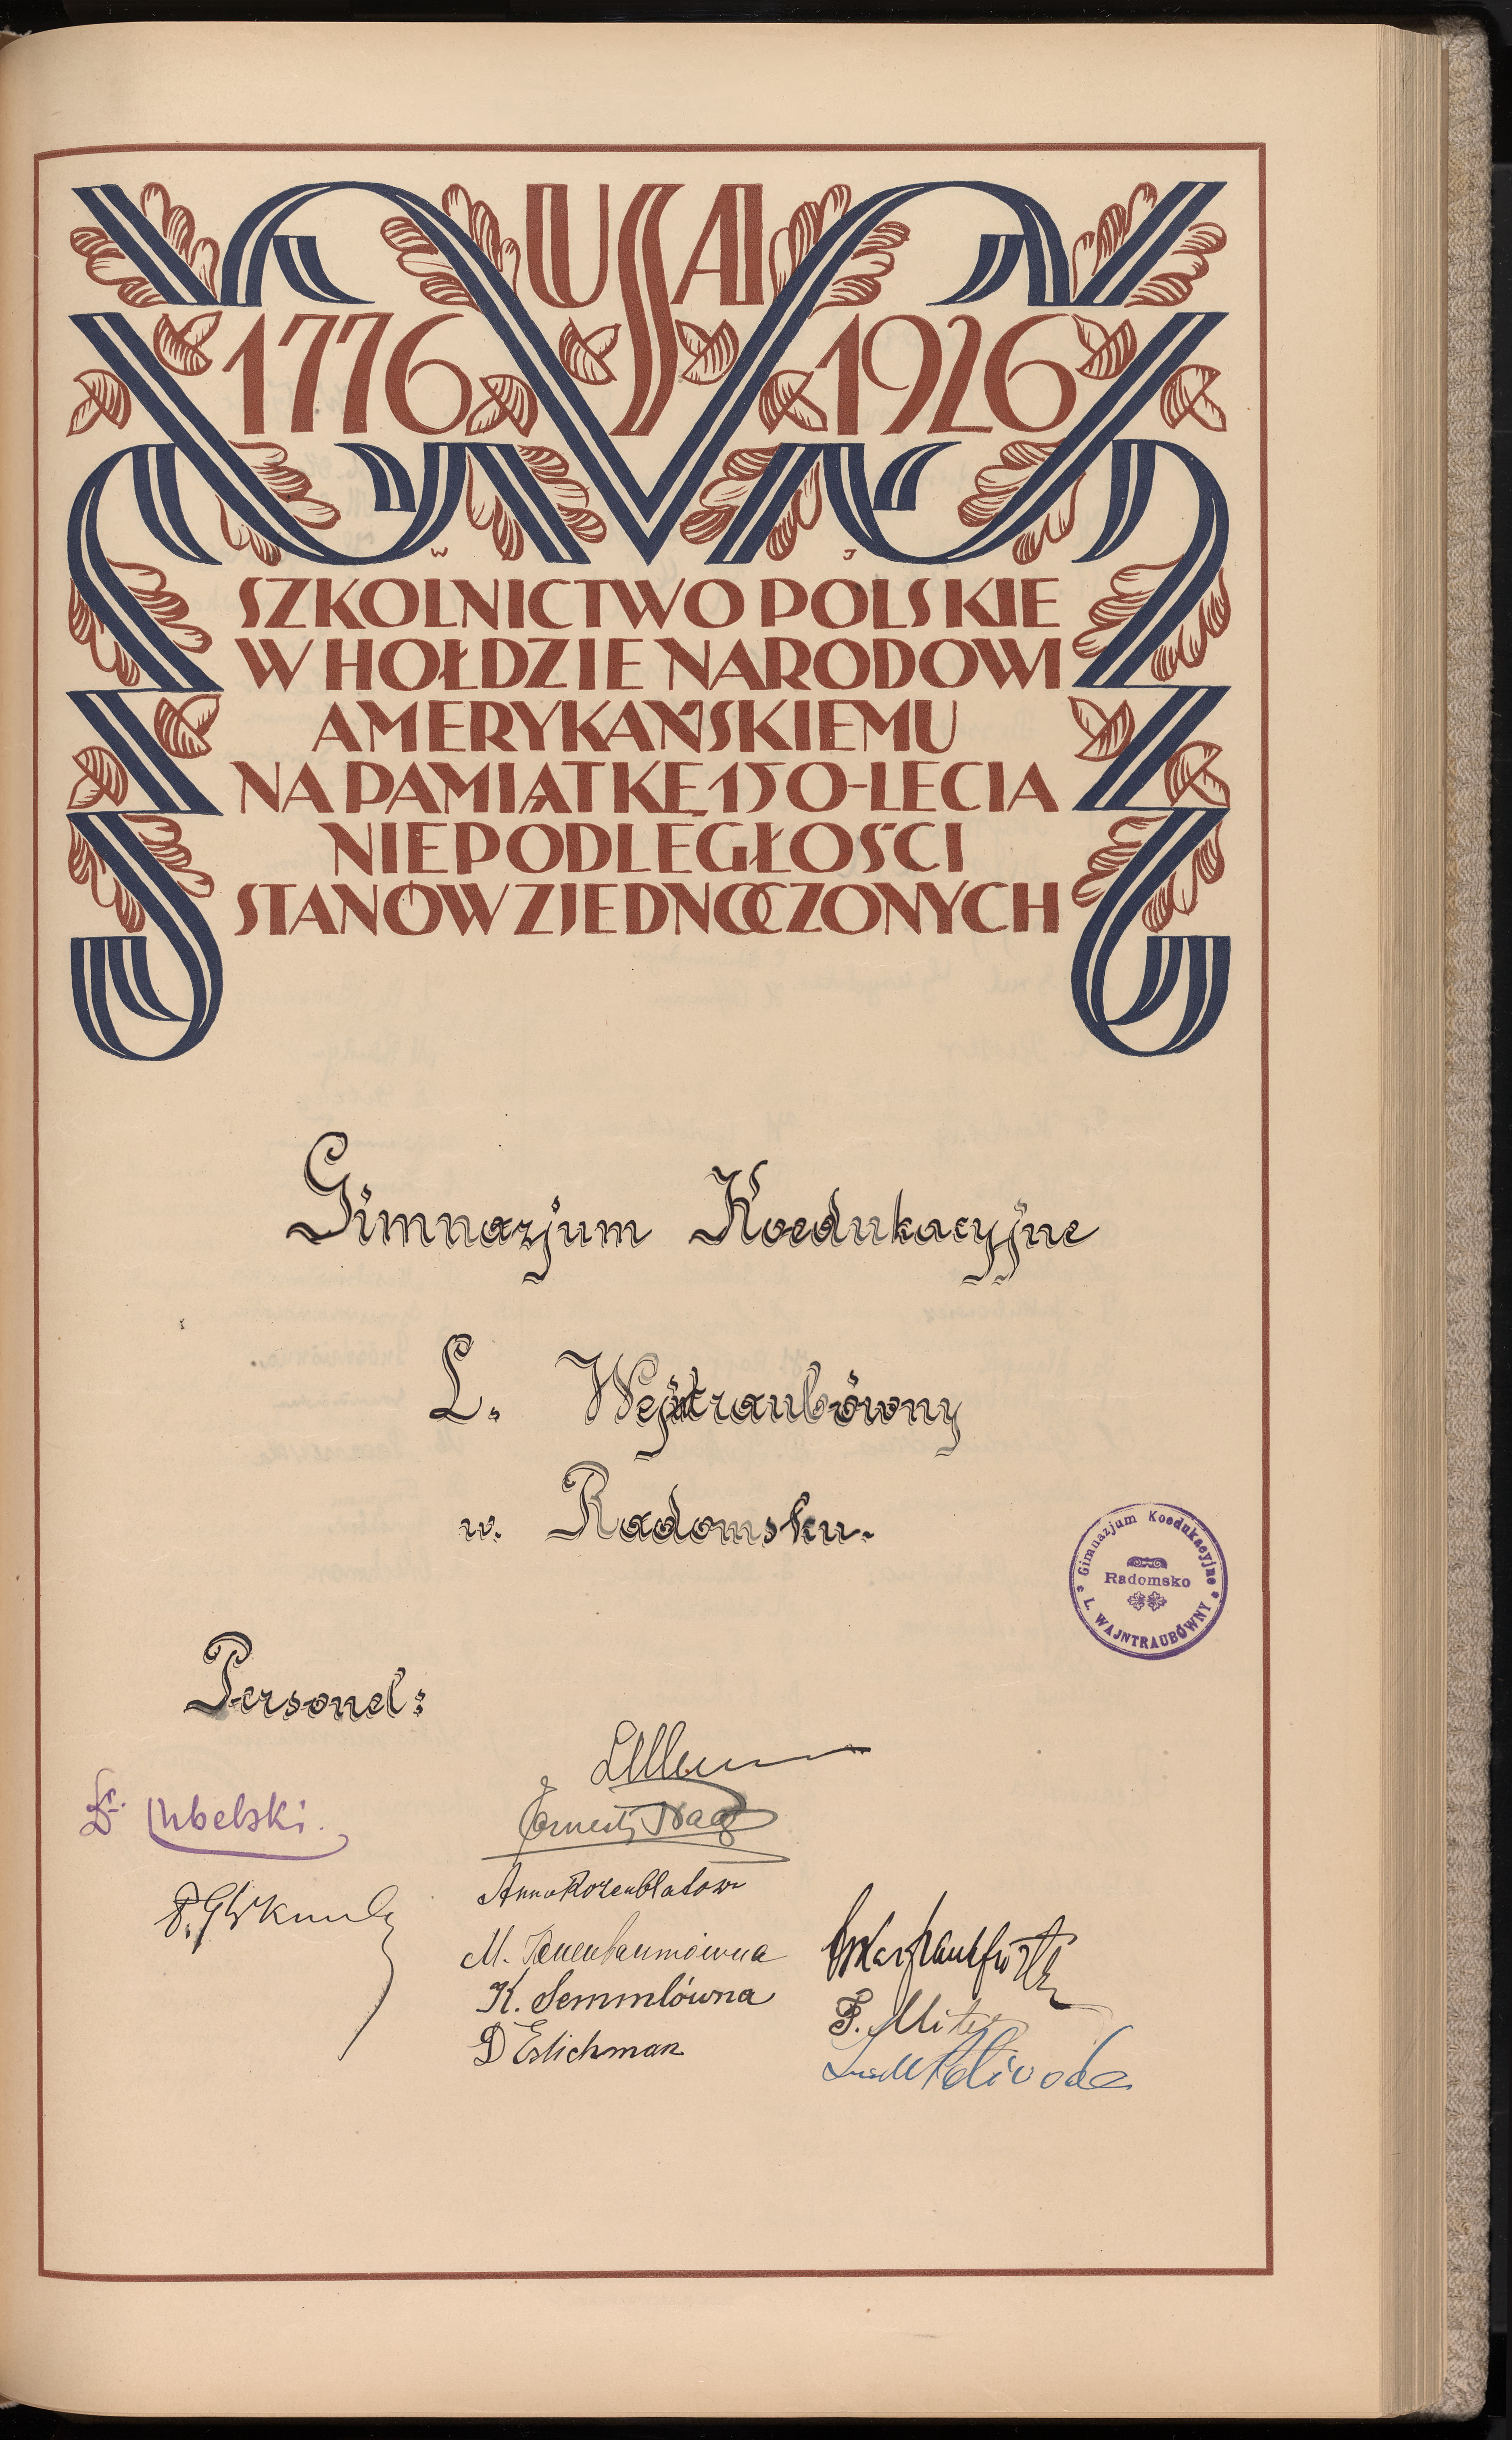 USA
1776 1926
W J
SZKOLNICTWO POLSKIE
W HOŁDZIE NARODOWI
AMERYKAŃSKIEMU
NA PAMIĄTKĘ 150-LECIA
NIEPODLEGŁOŚCI
STANÓW ZJEDNOCZONYCH
Gimnazjum Koedukacyjne
L. Wejntraubówny
w. Radomsku.
Gimnazjum Koedukacyjne
Radomsko
L. WAJNTRAUBÓWNY
Personel:
Dr. Lubelski.
Ernest Haas
Anna Rozenblatów
M. Tenenbaumówna
K. Semmlówna
D Estichman
Oskar Frankfurt
F.